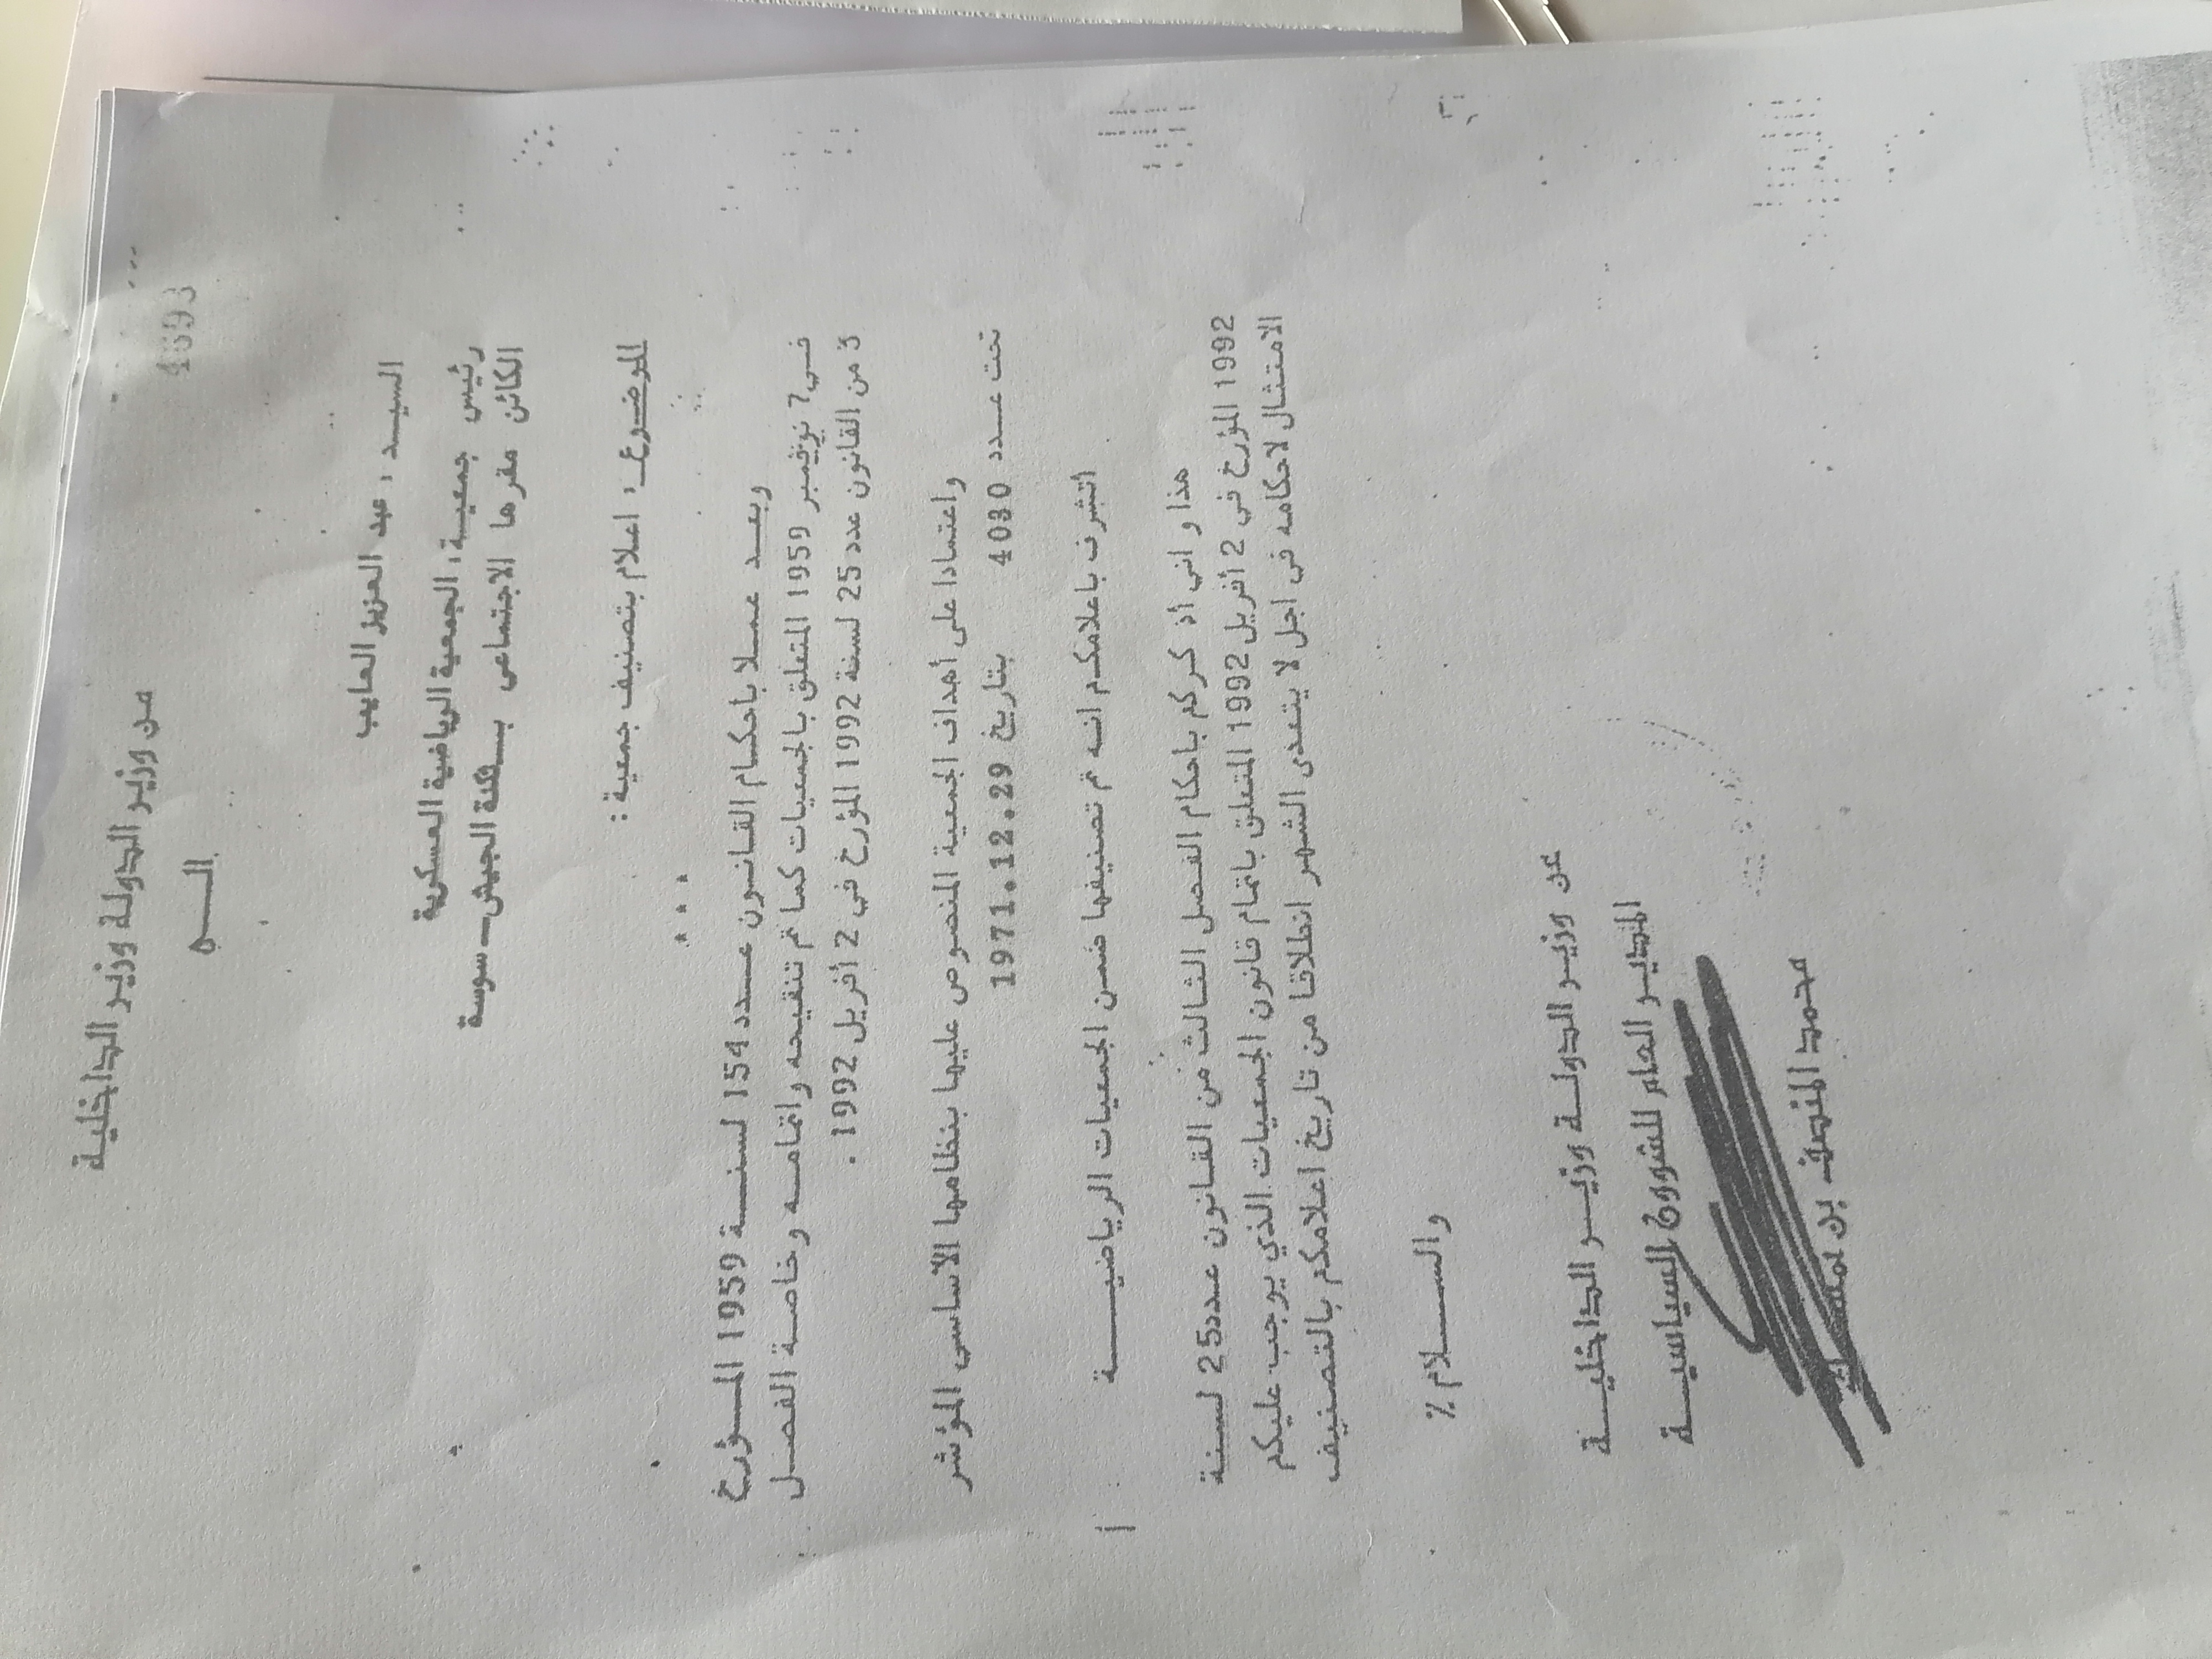 4693
من وزير الدولة وزير الداخلية
الـــى
السيـد : عبد العزيز العايب
رئيس جمعيـة : الجمعية الرياضية العسكرية
الكائن مقرها الاجتماعي بـثكنة الجيش ـ سوسة
الموضـوع : اعلام بتصنيف جمعية :
...
وبعـد عمـلا باحكـام القانـون عـدد 154 لسنـة 1959 المـؤرخ
في 7 نوفمبر 1959 المتعلق بالجمعيات كما تم تنقيحه واتمامـه وخاصـة الفصـل
3 من القانون عدد 25 لسنة 1992 المؤرخ في 2 أفريل 1992 .
واعتمادا على أهداف الجمعية المنصوص عليها بنظامها الأساسي المؤشر
تحت عـدد 4030 بتاريخ 1971.12.29
اتشرف باعلامكـم انـه تم تصنيفها ضمـن الجمعيات الرياضيـــة
هذا و اني أذكـركم باحكام الفصل الثالث من القـانون عـدد 25 لسنة
1992 المؤرخ في 2 أفريل 1992 المتعلق باتمام قانون الجمعيات الذي يوجب عليكم
الامتثال لاحكامه في اجل لا يتعدى الشهر انطلاقا من تاريخ اعلامكم بالتصنيف
والســـلام ٪
عن وزيـر الدولـة وزيـر الداخليـة
المدير العام للشؤون السياسيـة
محمد المنصف بن